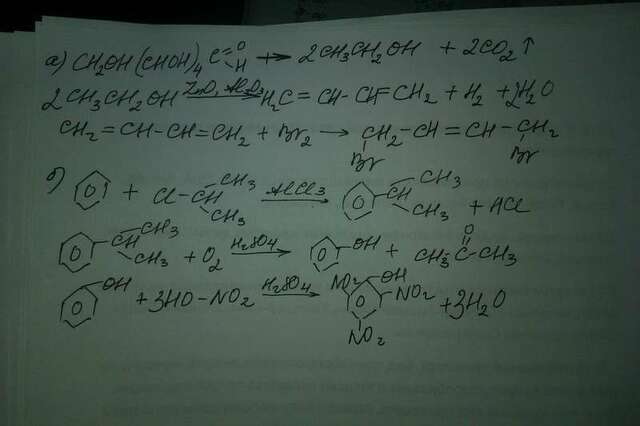 а) CH2OH(CHOH)4 C=O H → 2CH3CH2OH + 2CO2↑
2CH3CH2OH ZnO, Al2O3 → H2C=CH-CH=CH2 + H2 + 2H2O
CH2=CH-CH=CH2 + Br2 → CH2-CH=CH-CH2
Br Br
б) + Cl-CH CH3 CH3 AlCl3 → CH CH3 CH3 + HCl
CH CH3 CH3 + O2 H2SO4 → OH + CH3-C-CH3 O
OH + 3HO-NO2 H2SO4 → NO2 OH NO2 NO2 + 3H2O